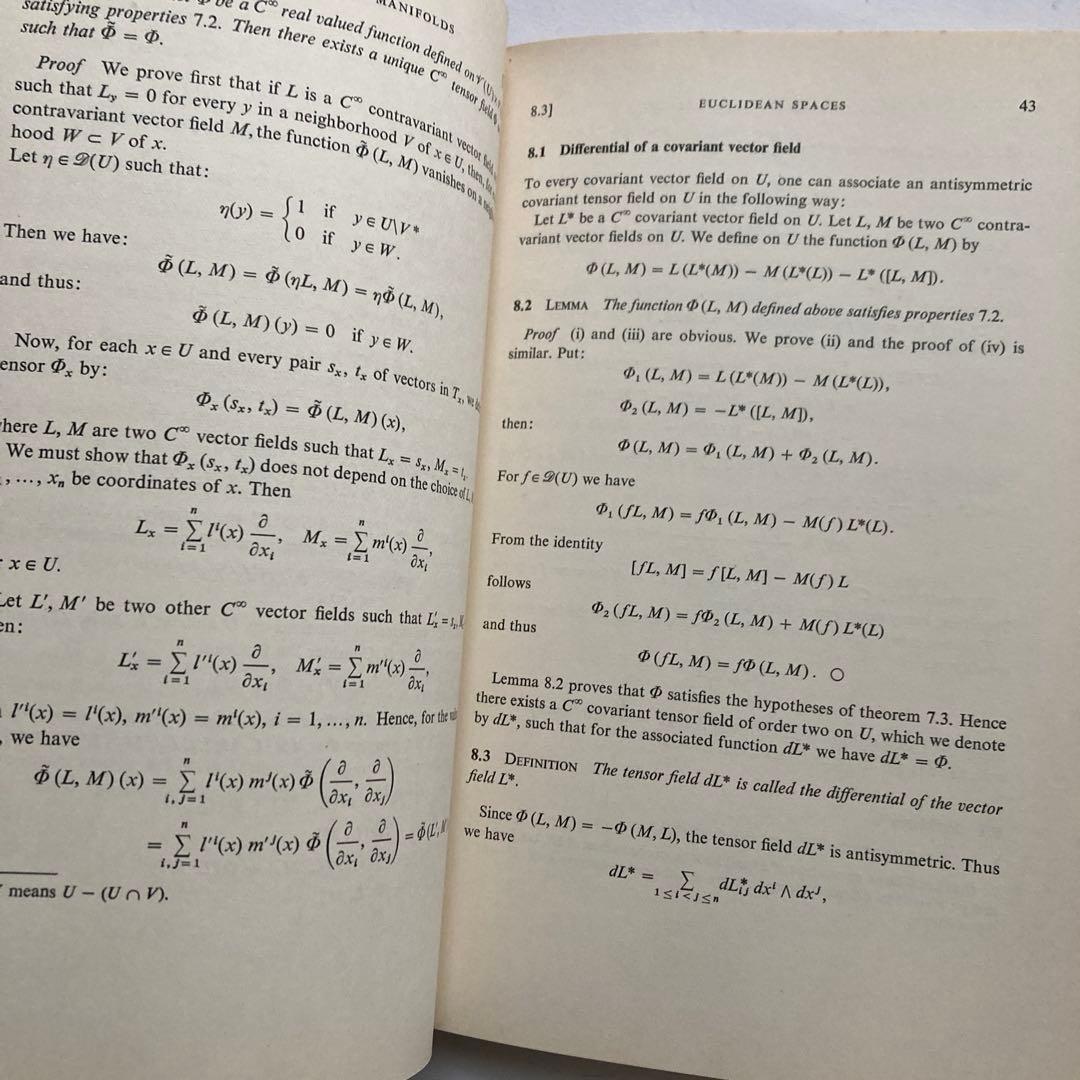 MANIFOLDS
be a C∞ real valued function defined on 𝒱(U)
satisfying properties 7.2. Then there exists a unique C∞ tensor field
such that Φ̃ = Φ.
Proof We prove first that if L is a C∞ contravariant vector field
such that L_y = 0 for every y in a neighborhood V of x ∈ U, then, for
contravariant vector field M, the function Φ̃ (L, M) vanishes on a
hood W ⊂ V of x.
Let η ∈ 𝒟(U) such that:
η(y) = { 1 if y ∈ U\V*
0 if y ∈ W.
Then we have:
Φ̃ (L, M) = Φ̃ (ηL, M) = ηΦ̃ (L, M),
and thus:
Φ̃ (L, M) (y) = 0 if y ∈ W.
Now, for each x ∈ U and every pair s_x, t_x of vectors in T_x, we
ensor Φ_x by:
Φ_x (s_x, t_x) = Φ̃ (L, M) (x),
here L, M are two C∞ vector fields such that L_x = s_x, M_x = t_x.
We must show that Φ_x (s_x, t_x) does not depend on the choice of L,
, …, x_n be coordinates of x. Then
L_x = ∑_{i=1}^{n} l^i(x) ∂/∂x_i, M_x = ∑_{i=1}^{n} m^i(x) ∂/∂x_i,
x ∈ U.
Let L′, M′ be two other C∞ vector fields such that L′_x = s_x,
en:
L′_x = ∑_{i=1}^{n} l′^i(x) ∂/∂x_i, M′_x = ∑_{i=1}^{n} m′^i(x) ∂/∂x_i,
l′^i(x) = l^i(x), m′^i(x) = m^i(x), i = 1, …, n. Hence, for the
, we have
Φ̃ (L, M) (x) = ∑_{i,j=1}^{n} l^i(x) m^j(x) Φ̃ (∂/∂x_i, ∂/∂x_j)
= ∑_{i,j=1}^{n} l′^i(x) m′^j(x) Φ̃ (∂/∂x_i, ∂/∂x_j) = Φ̃(L′, M
means U − (U ∩ V).
8.3] EUCLIDEAN SPACES 43
8.1 Differential of a covariant vector field
To every covariant vector field on U, one can associate an antisymmetric
covariant tensor field on U in the following way:
Let L* be a C∞ covariant vector field on U. Let L, M be two C∞ contra-
variant vector fields on U. We define on U the function Φ (L, M) by
Φ (L, M) = L (L*(M)) − M (L*(L)) − L* ([L, M]).
8.2 LEMMA The function Φ (L, M) defined above satisfies properties 7.2.
Proof (i) and (iii) are obvious. We prove (ii) and the proof of (iv) is
similar. Put:
Φ₁ (L, M) = L (L*(M)) − M (L*(L)),
Φ₂ (L, M) = −L* ([L, M]),
then:
Φ (L, M) = Φ₁ (L, M) + Φ₂ (L, M).
For f ∈ 𝒟(U) we have
Φ₁ (fL, M) = fΦ₁ (L, M) − M(f) L*(L).
From the identity
[fL, M] = f [L, M] − M(f) L
follows
Φ₂ (fL, M) = fΦ₂ (L, M) + M(f) L*(L)
and thus
Φ (fL, M) = fΦ (L, M). ○
Lemma 8.2 proves that Φ satisfies the hypotheses of theorem 7.3. Hence
there exists a C∞ covariant tensor field of order two on U, which we denote
by dL*, such that for the associated function dL* we have dL* = Φ.
8.3 DEFINITION The tensor field dL* is called the differential of the vector
field L*.
Since Φ (L, M) = −Φ (M, L), the tensor field dL* is antisymmetric. Thus
we have
dL* = ∑_{1≤i<j≤n} dL*_{ij} dx^i ∧ dx^j,